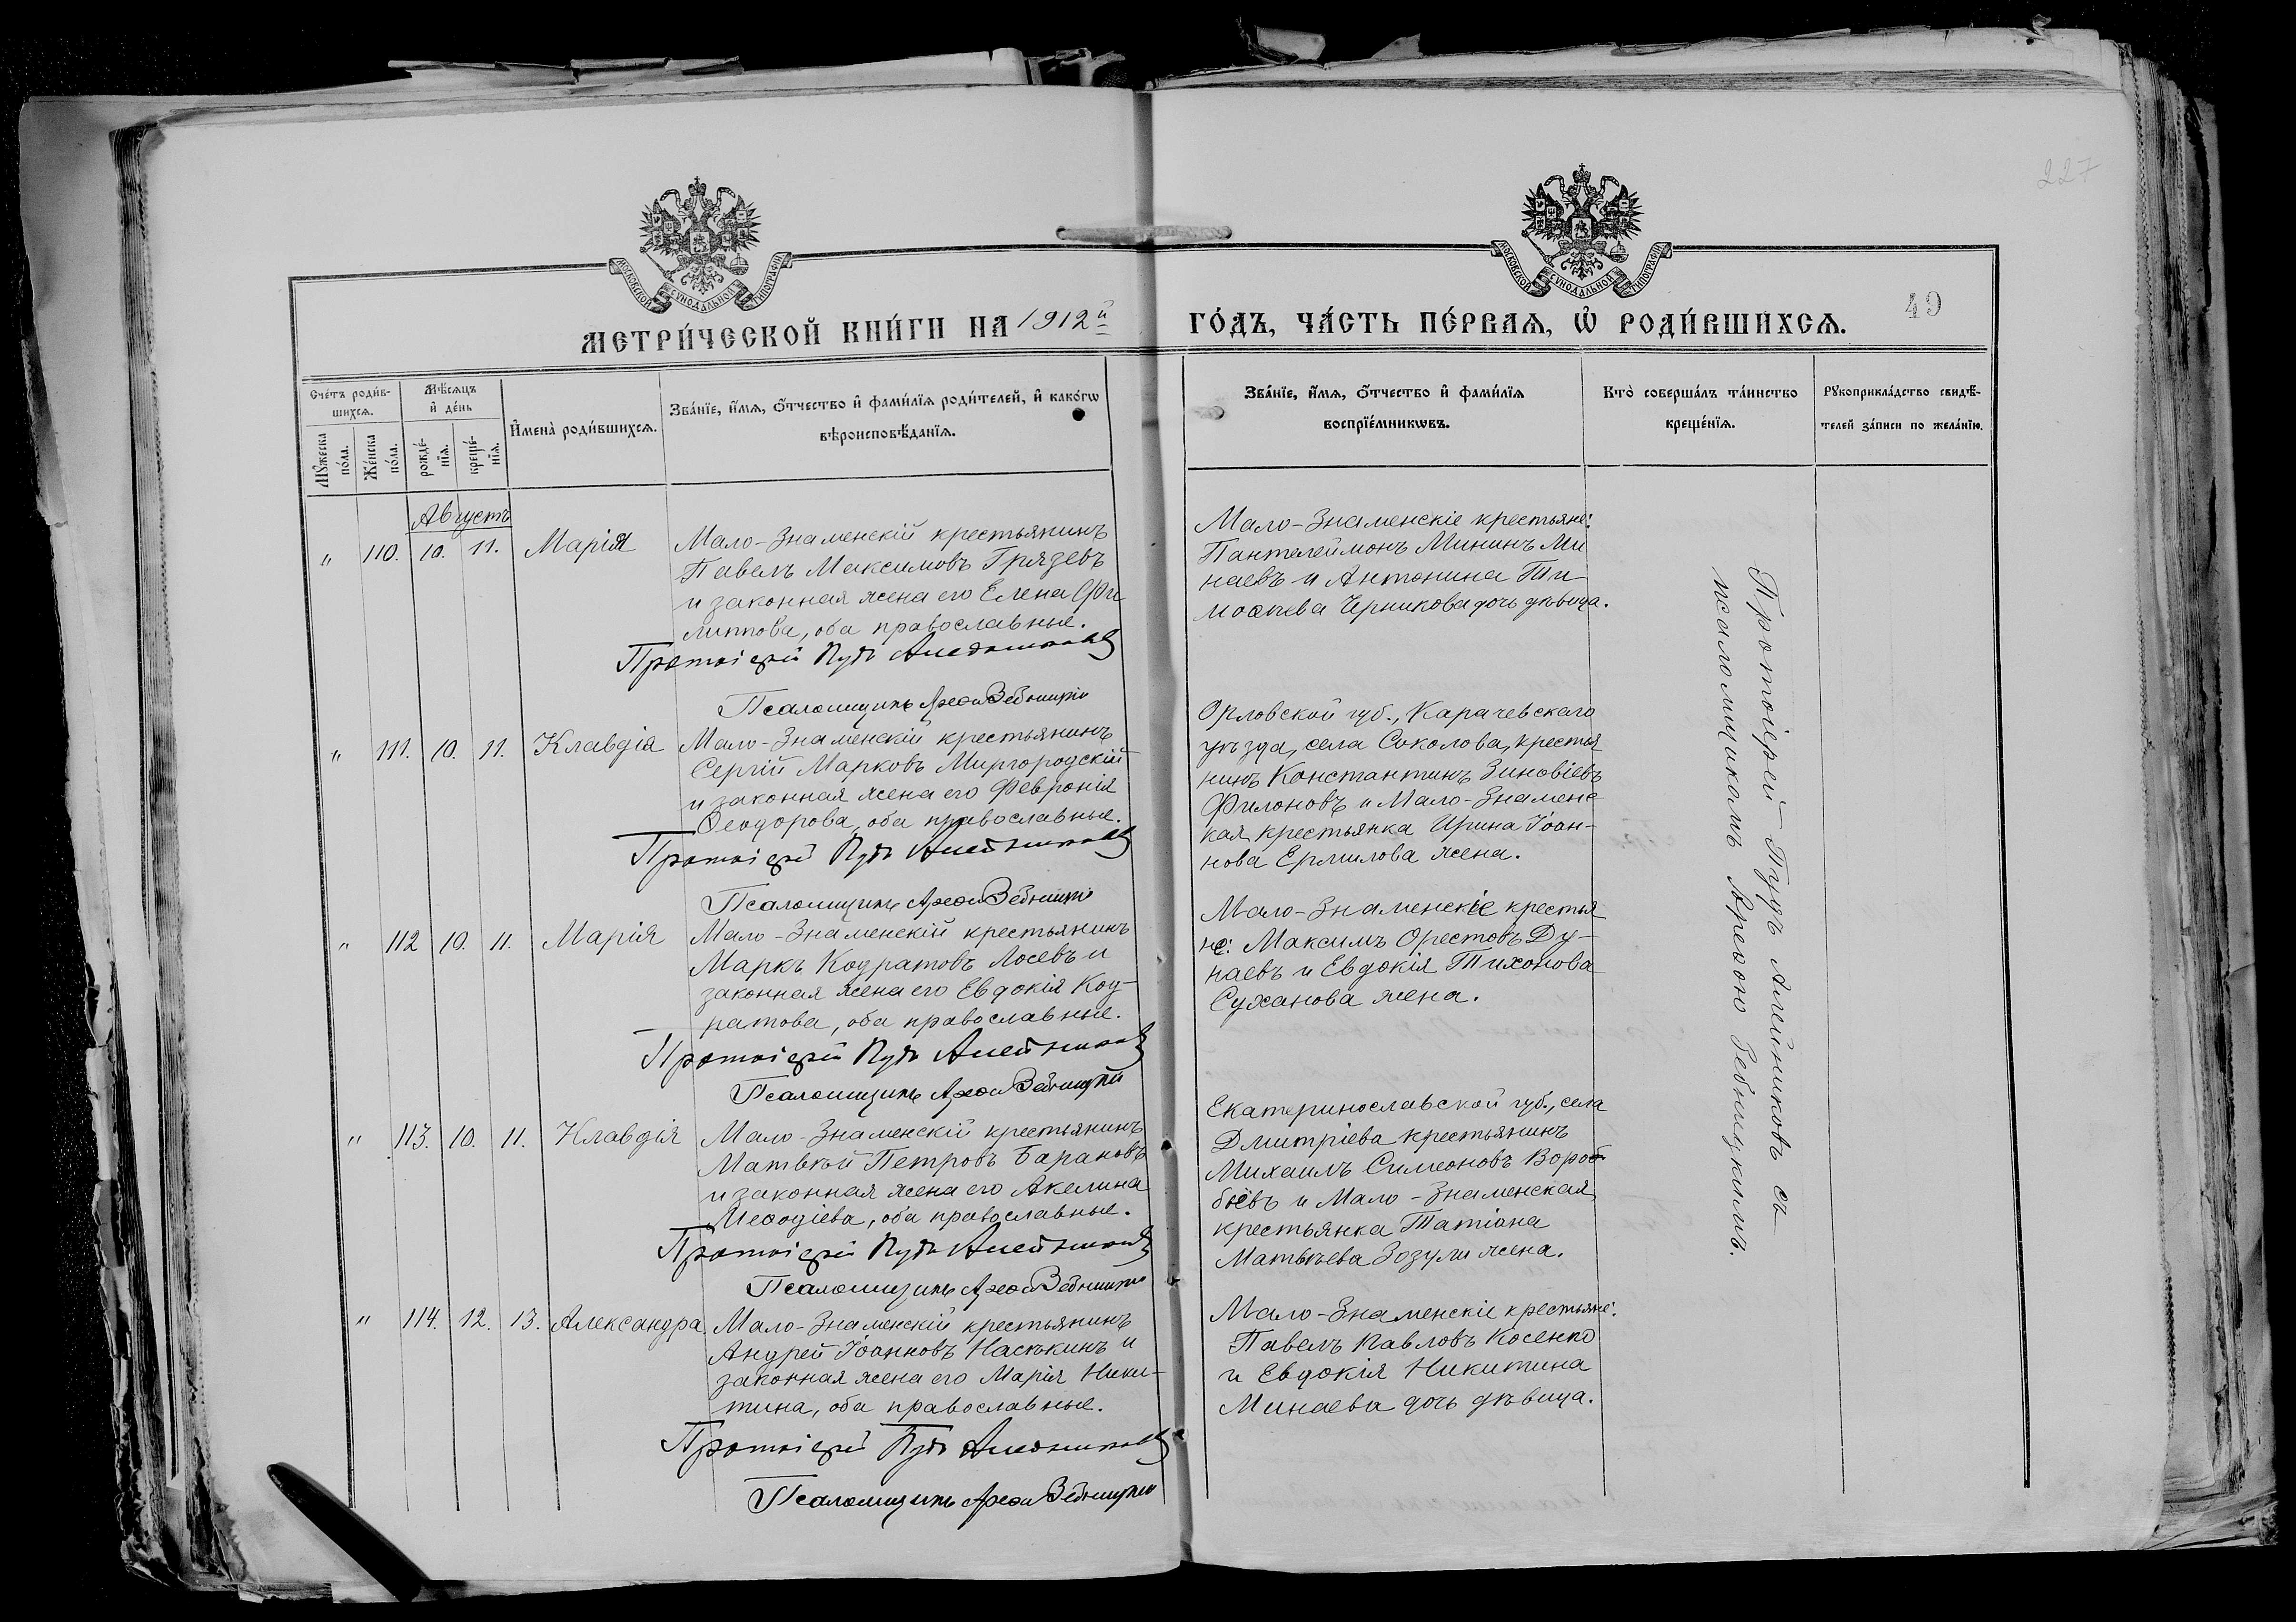 227
МОСКОВСКОЙ СѴНОДАЛЬНОЙ ТИПОГРАФІИ
МОСКОВСКОЙ СѴНОДАЛЬНОЙ ТИПОГРАФІИ
МЕТРИ́ЧЕСКОЙ КНИ́ГИ НА 1912й ГО́ДЪ, ЧА́СТЬ ПЕ́РВАЯ, Ѽ РОДИ́ВШИХСЯ.
49
Сче́тъ роди́в-
шихся.
Мꙋ́жеска
по́ла.
Же́нска
по́ла.
Мѣ́сяцъ
и҆ де́нь
рожде́-
нїя.
креще́-
нїя.
И҆мена̀ роди́вшихся.
Зва́нїе, и҆́мя, ѻ҆́тчество и҆ фами́лїя роди́телей, и҆ како́гѡ
вѣроисповѣ́данїя.
Зва́нїе, и҆́мя, ѻ҆́тчество и҆ фами́лїя
воспрїе́мникѡвъ.
Кто̀ соверша́лъ та́инство
креще́нїя.
Рꙋкоприкла́дство свидѣ́-
телей за́писи по жела́нїю.
Августъ
" 110. 10. 11. Марія
Мало-Знаменскій крестьянинъ
Павелъ Максимовъ Грязевъ
и законная жена его Елена Фи-
липпова, оба православные.
Протоіерей Пудъ Алейниковъ
Псаломщикъ Арефа Зебницкій
Мало-Знаменскіе крестьяне:
Пантелеймонъ Мининъ Ми
наевъ и Антонина Ти-
моѳеева Черникова дочь дѣвица.
" 111. 10. 11. Клавдія
Мало-Знаменскій крестьянинъ
Сергій Марковъ Миргородскій
и законная жена его Февронія
Ѳеодорова, оба православные.
Протоіерей Пудъ Алейниковъ
Псаломщикъ Арефа Зебницкій
Орловской губ., Карачевскаго
уѣзда, села Соколова, крестья
нинъ Константинъ Зиновіевъ
Филоновъ и Мало-Знаменс
кая крестьянка Ирина Іоан-
нова Ермилова жена.
" 112 10. 11. Марія
Мало-Знаменскій крестьянинъ
Маркъ Кодратовъ Лосевъ и
законная жена его Евдокія Код-
ратова, оба православные.
Протоіерей Пудъ Алейниковъ
Псаломщикъ Арефа Зебницкій
Мало-Знаменскіе крестья
не: Максимъ Орестовъ Ду-
наевъ и Евдокія Тихонова
Суханова жена.
" 113. 10. 11. Клавдія
Мало-Знаменскій крестьянинъ
Матвѣй Петровъ Барановъ
и законная жена его Акелина
Меѳодіева, оба православные.
Протоіерей Пудъ Алейниковъ
Псаломщикъ Арефа Зебницкій
Екатеринославской губ., села
Дмитріева крестьянинъ
Михаилъ Симеоновъ Вороб
бьёвъ и Мало-Знаменская
крестьянка Татіана
Матвѣева Зозули жена.
" 114. 12. 13. Александра
Мало-Знаменскій крестьянинъ
Андрей Іоанновъ Насѣкинъ и
законная жена его Марія Ники-
тина, оба православные.
Протоіерей Пудъ Алейниковъ
Псаломщикъ Арефа Зебницкій
Мало-Знаменскіе крестьяне:
Павелъ Павловъ Косенко
и Евдокія Никитина
Минаева дочь дѣвица.
Протоіерей Пудъ Алейниковъ съ
псаломщикомъ Арефою Зебницкимъ.